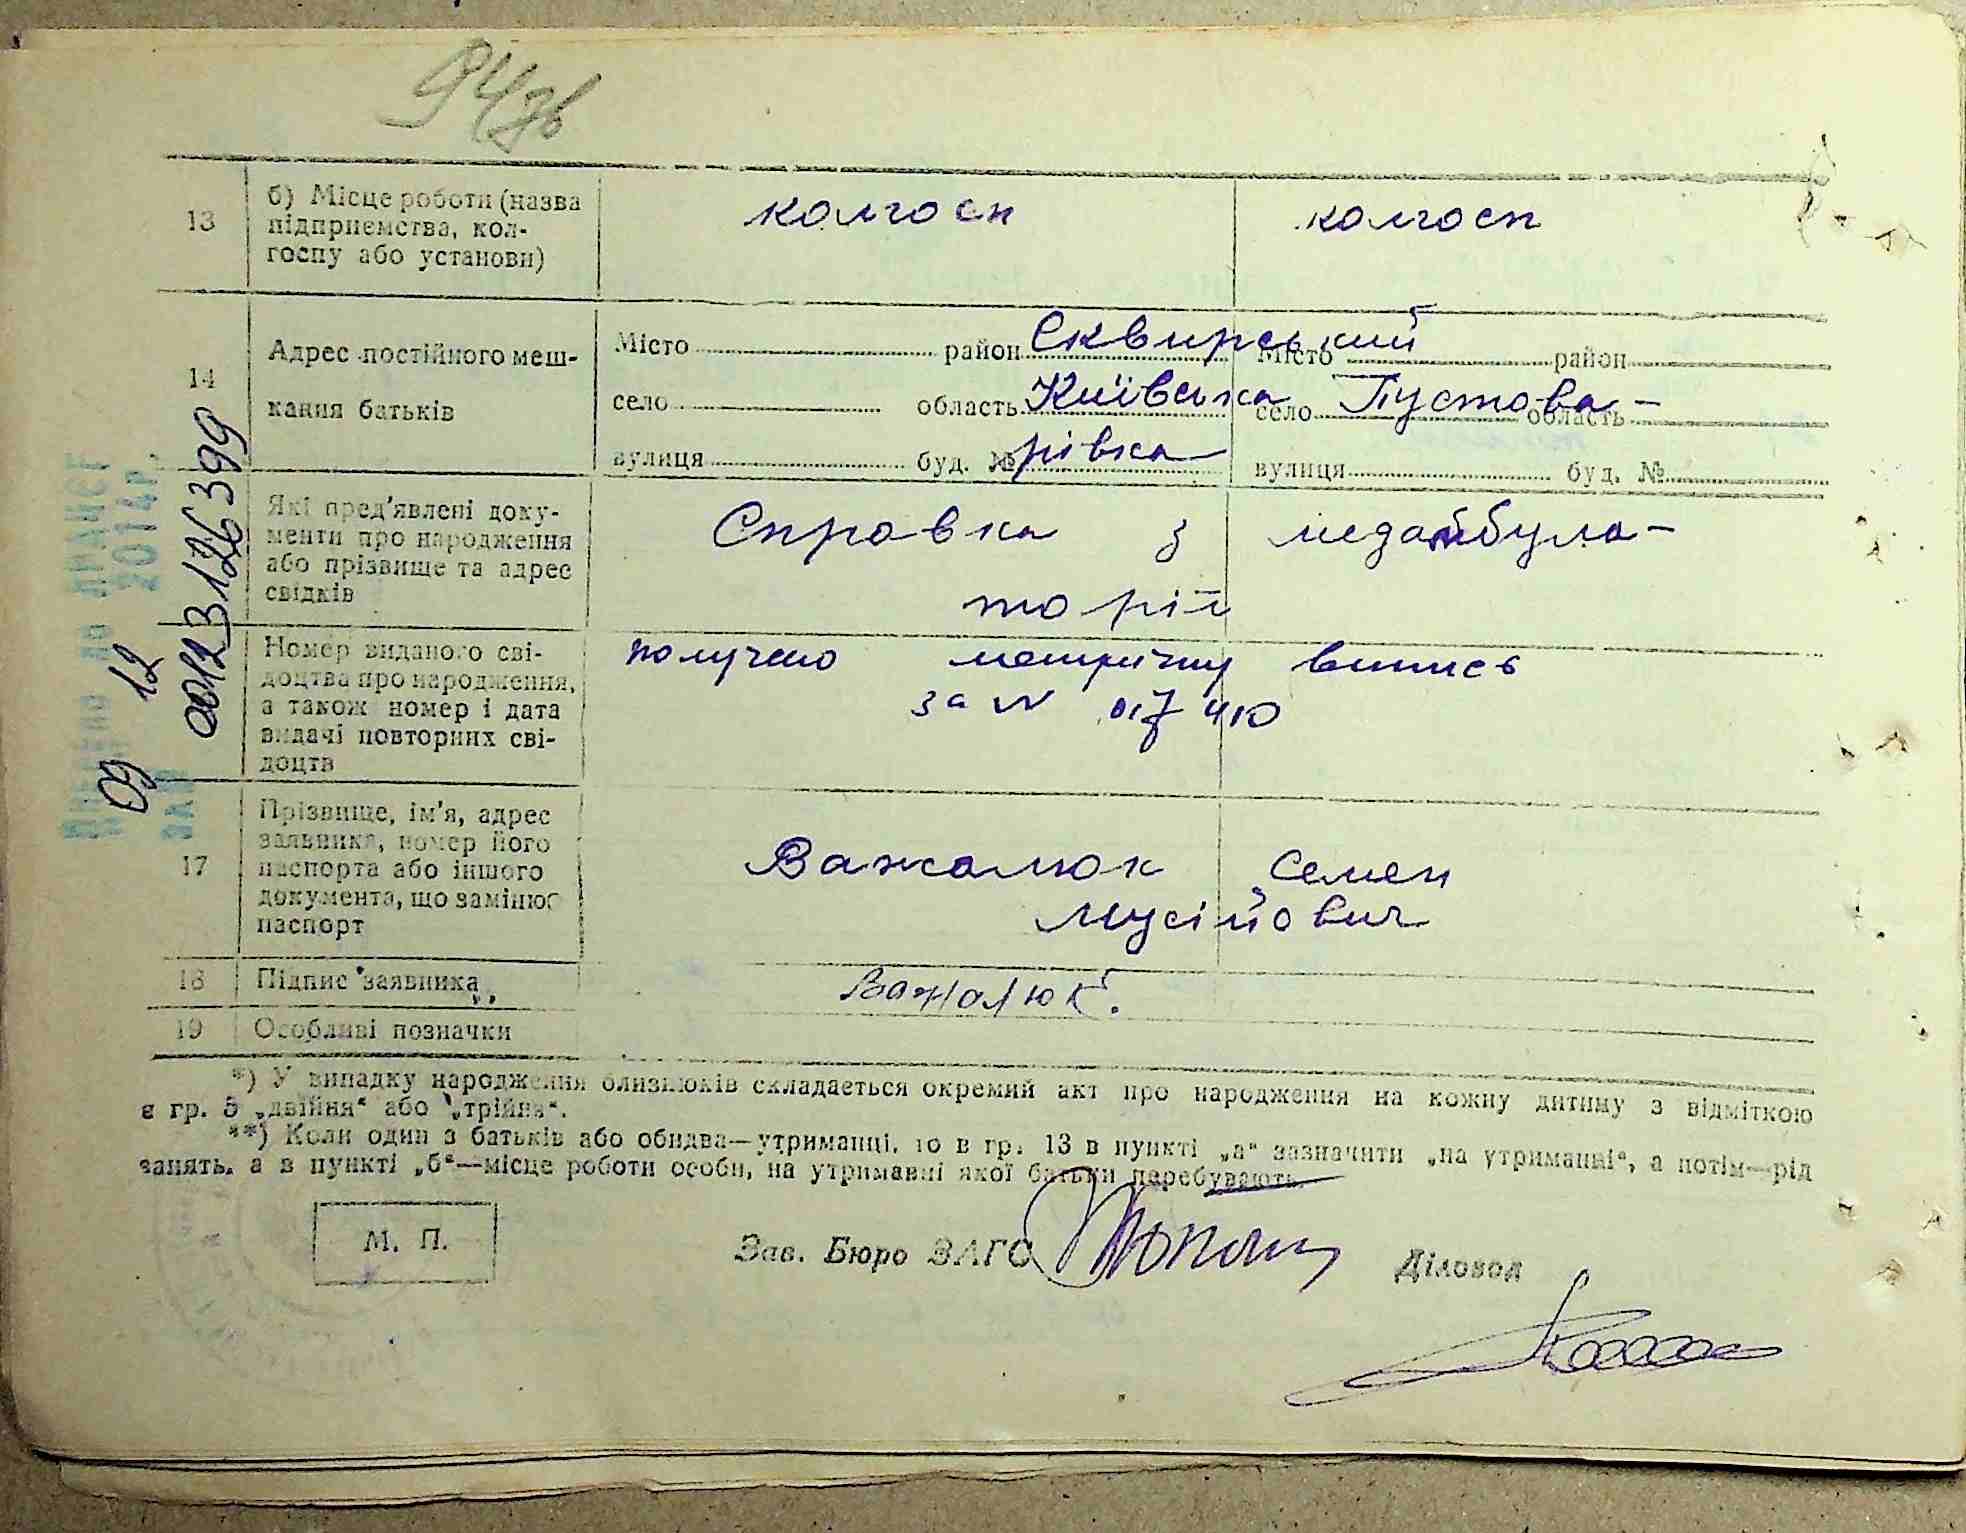 94зв
13 б) Місце роботи (назва підприємства, колгоспу або установи) колгосп колгосп
14 Адрес постійного мешкання батьків
Місто район Сквирський Місто район
село область Київська село Пустова- область
вулиця буд. № рівка вулиця буд. №
Які пред'явлені документи про народження або прізвище та адрес свідків
Справка з медамбула-
торії
Номер виданого свідоцтва про народження, а також номер і дата видачі повторних свідоцтв
получено метричну випись
за N 017410
17 Прізвище, ім'я, адрес заявника, номер його паспорта або іншого документа, що замінює паспорт
Важалюк Семен
Мусійович
18 Підпис заявника Важалюк.
19 Особливі позначки
*) У випадку народження близнюків складається окремий акт про народження на кожну дитину з відміткою
в гр. 3 „двійня“ або „трійня“.
**) Коли один з батьків або обидва—утриманці, то в гр. 13 в пункті „а“ зазначити „на утриманні“, а потім—рід
занять, а в пункті „б“—місце роботи особи, на утриманні якої батьки перебувають.
М. П. Зав. Бюро ЗАГС Діловод
2014р.
09 12
00123126399